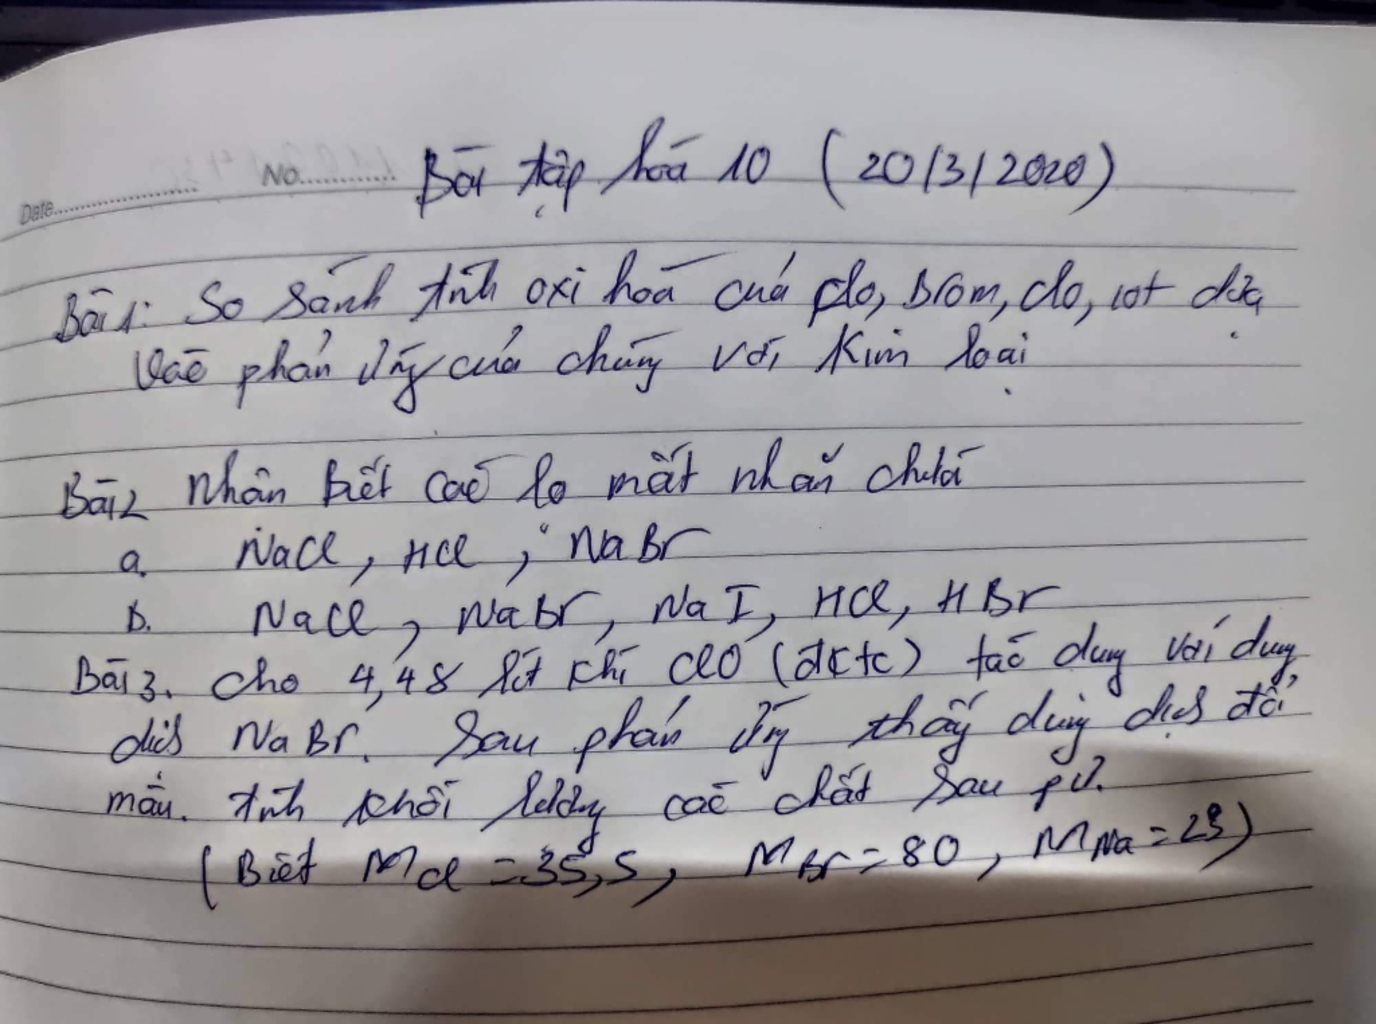 Date............ No............
Bài tập hoá 10 (20/3/2020)
Bài 1: So sánh tính oxi hoá của flo, brôm, clo, iot dựa
vào phản ứng của chúng với kim loại
Bài 2 Nhận biết các lọ mất nhãn chứa
a. NaCl, HCl, NaBr
b. NaCl, NaBr, NaI, HCl, HBr
Bài 3. Cho 4,48 lít khí clo (đktc) tác dụng với dung
dịch NaBr. Sau phản ứng thấy dung dịch đổi
màu. Tính khối lượng các chất sau pứ.
(Biết MCl = 35,5, MBr = 80, MNa = 23)